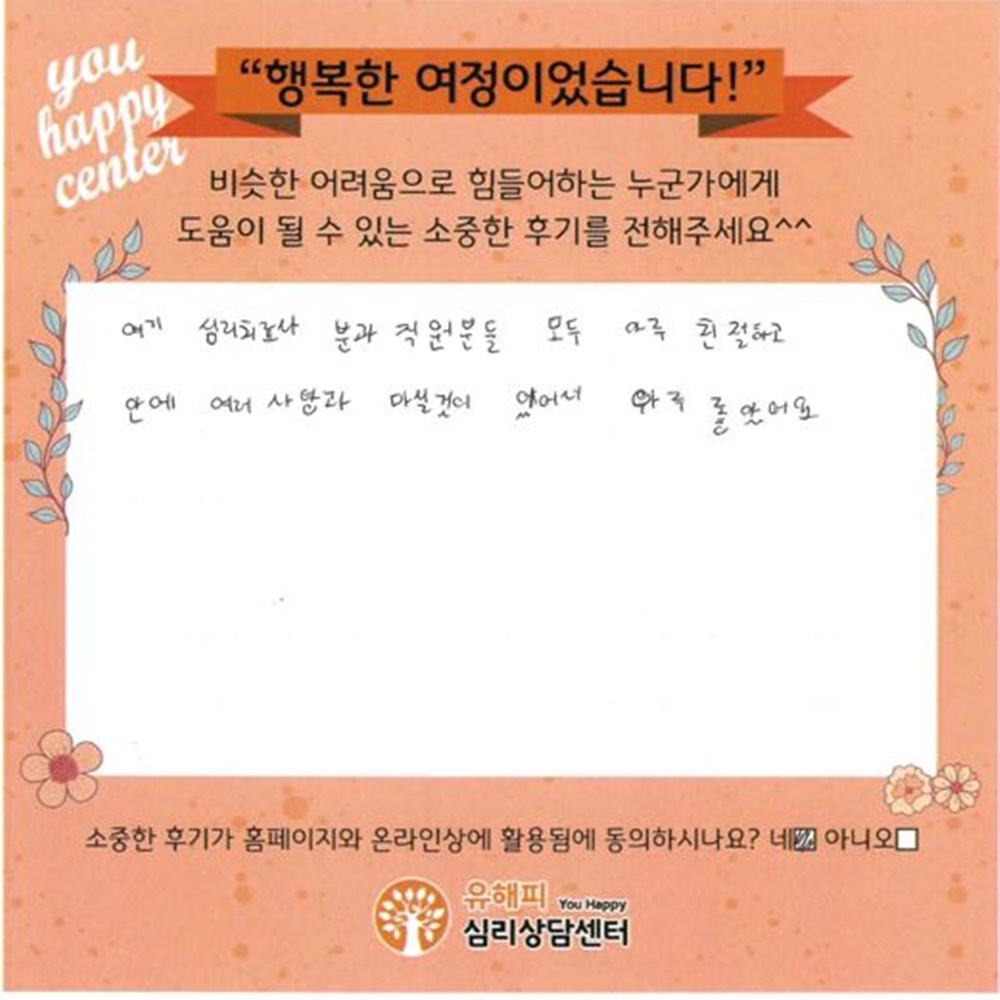 you
happy
center
“행복한 여정이었습니다!”
비슷한 어려움으로 힘들어하는 누군가에게
도움이 될 수 있는 소중한 후기를 전해주세요^^
여기 심리치료사 분과 직원분들 모두 아주 친절하고
안에 여러 사탕과 마실것이 있어서 아주 좋았어요
소중한 후기가 홈페이지와 온라인상에 활용됨에 동의하시나요? 네 아니오
유해피 You Happy
심리상담센터